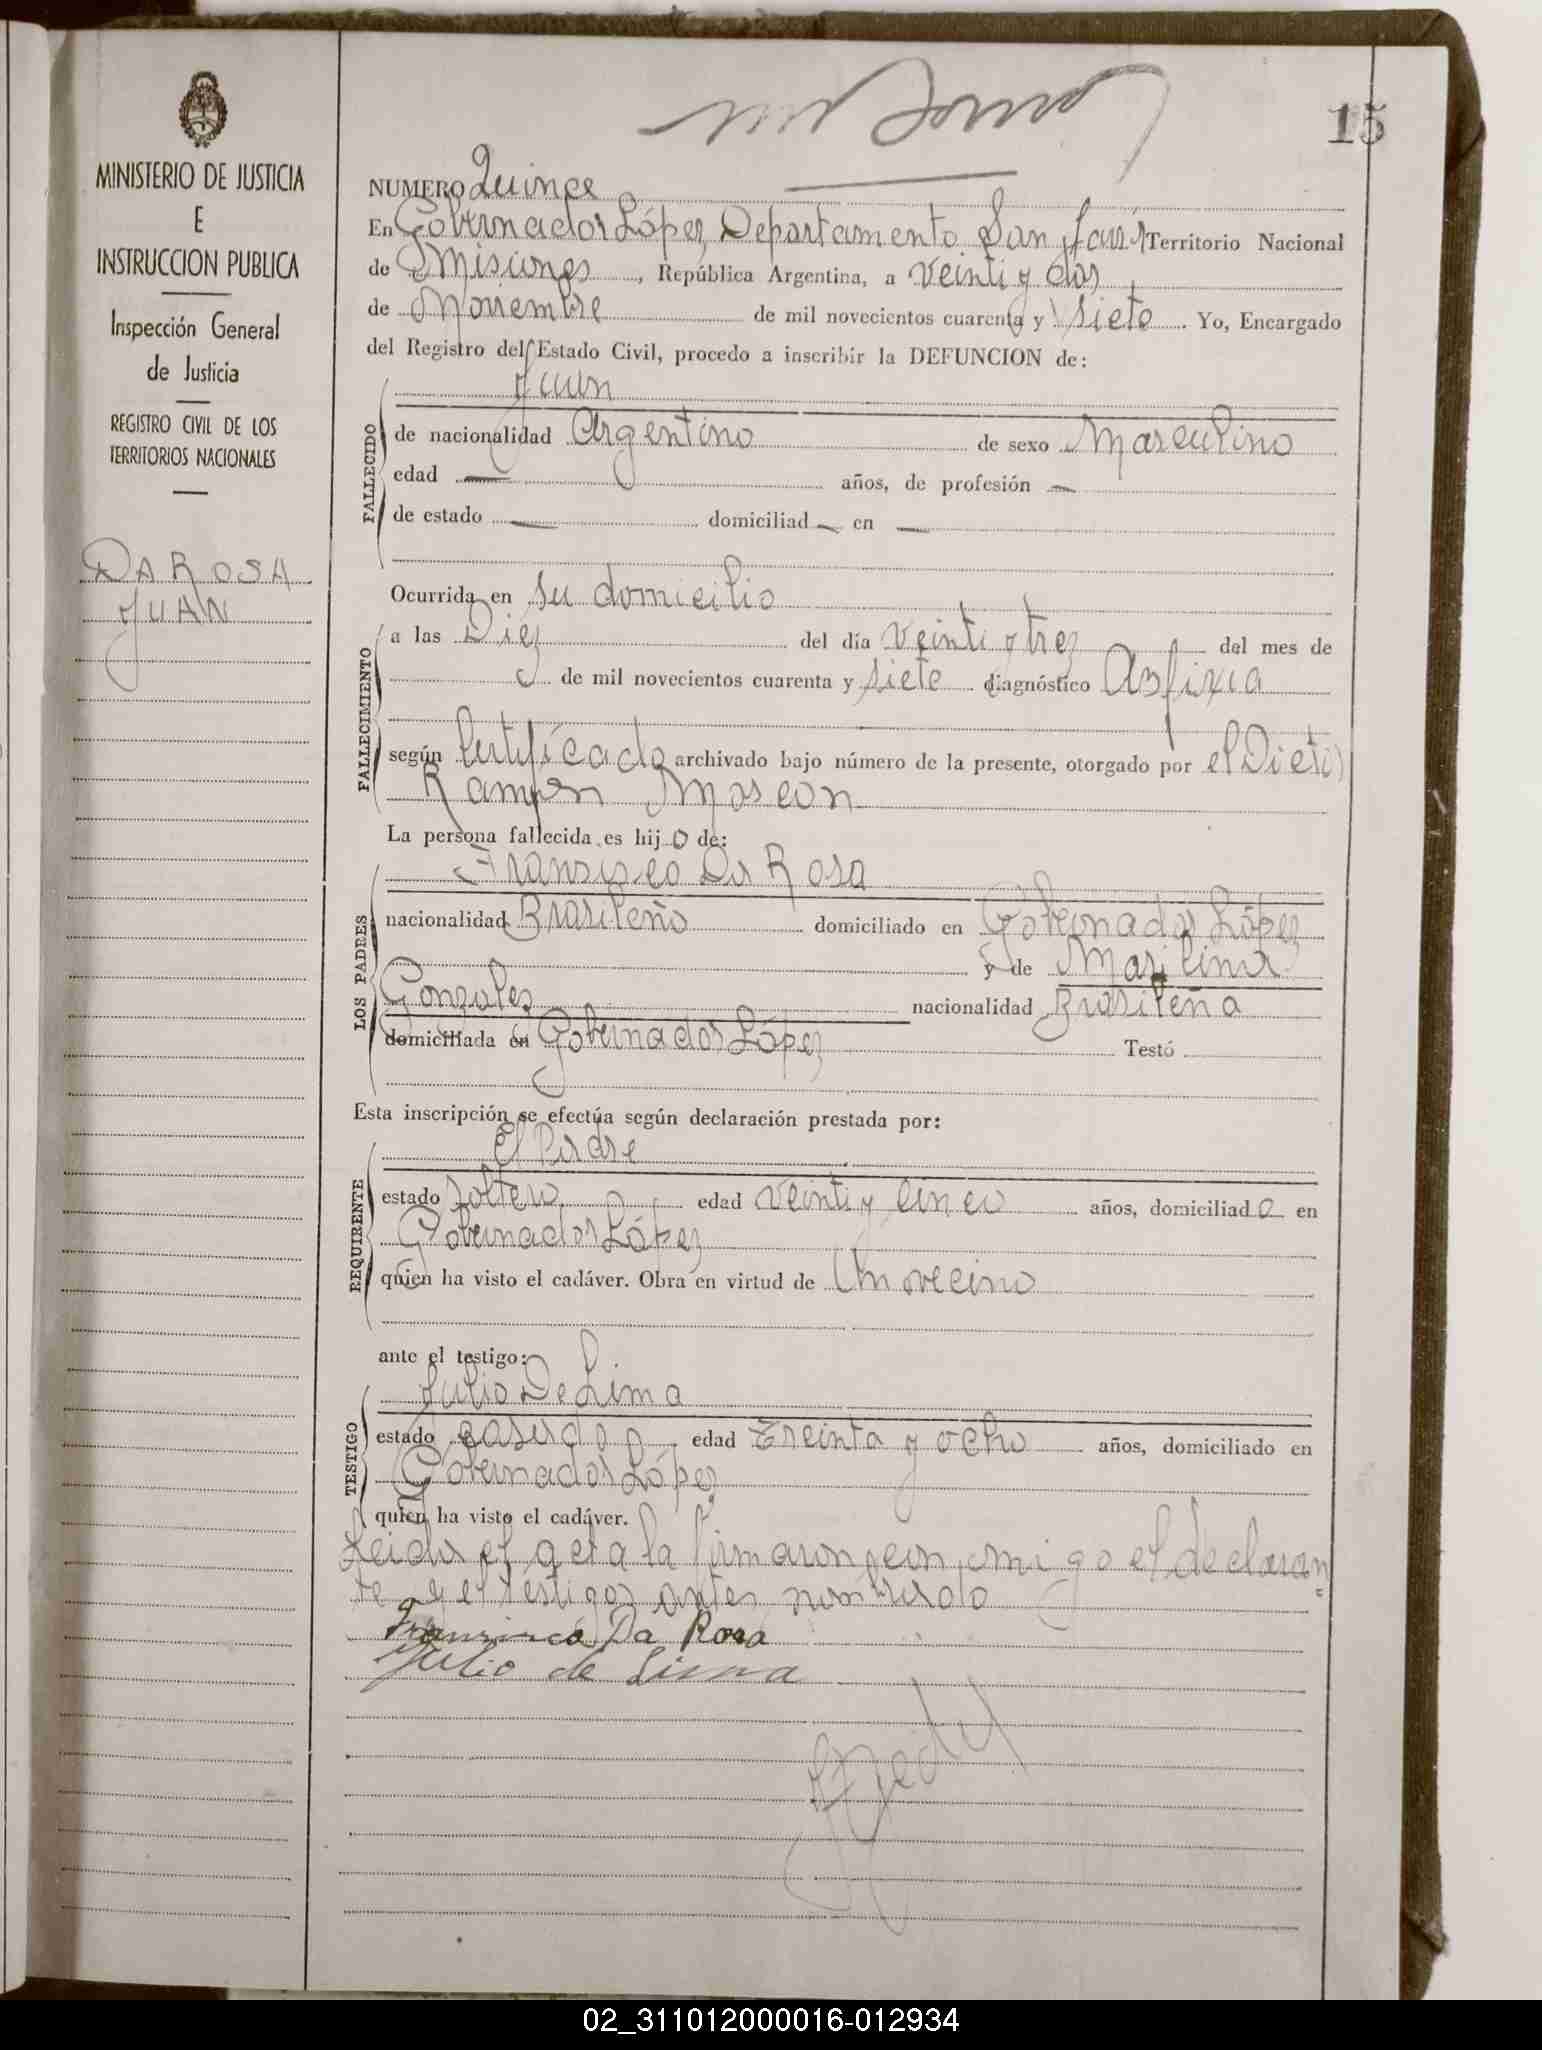 15
MINISTERIO DE JUSTICIA
E
INSTRUCCION PUBLICA
Inspección General
de Justicia
REGISTRO CIVIL DE LOS
TERRITORIOS NACIONALES
DA ROSA
JUAN
NUMERO Quince
En Gobernador López, Departamento San Javier Territorio Nacional
de Misiones, República Argentina, a veinti y dos
de Noviembre de mil novecientos cuarenta y siete. Yo, Encargado
del Registro del Estado Civil, procedo a inscribir la DEFUNCION de:
FALLECIDO
Juan
de nacionalidad Argentino de sexo Masculino
edad — años, de profesión —
de estado — domiciliad — en —
Ocurrida en su domicilio
FALLECIMIENTO
a las Diez del día veinti y trez del mes de
de mil novecientos cuarenta y siete diagnóstico Asfixia
según Certificado archivado bajo número de la presente, otorgado por el
Ramon
La persona fallecida es hijo de:
LOS PADRES
Franzisco Da Rosa
nacionalidad Brasileño domiciliado en Gobernador López
y de
Gonzalez nacionalidad Brasileña
domiciliada en Gobernador López Testó
Esta inscripción se efectúa según declaración prestada por:
REQUIRENTE
El Padre
estado soltero edad veinti y cinco años, domiciliado en
Gobernador López
quien ha visto el cadáver. Obra en virtud de Un vecino
ante el testigo:
TESTIGO
Julio De Lima
estado casado edad Treinta y ocho años, domiciliado en
Gobernador López
quien ha visto el cadáver.
Leida el acta la firmaron con migo el declaran
te y el testigo antes nombrado
Franzisco Da Rosa
Julio de Lima
02_311012000016-012934